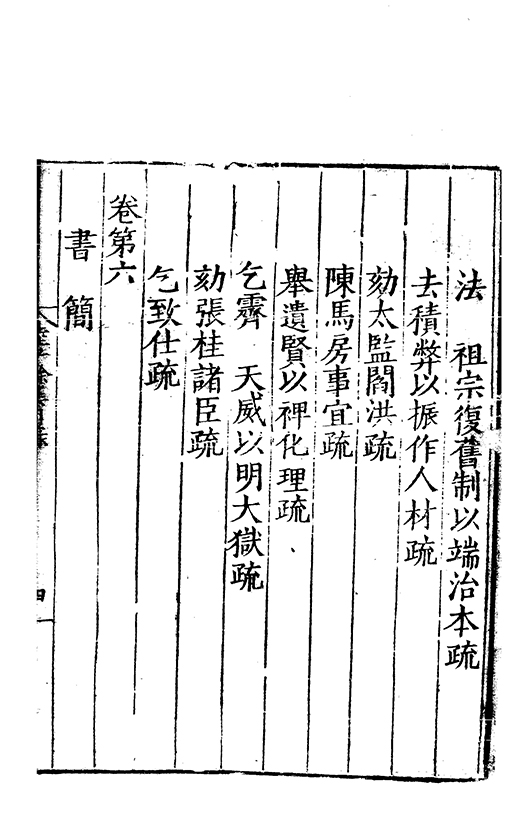 法　祖宗復舊制以端治本疏
去積弊以振作人材疏
劾太監閻洪疏
陳馬房事宜疏
舉遺賢以裨化理疏
乞霽　天威以明大獄疏
劾張桂諸臣疏
乞致仕疏
卷第六
書簡
四